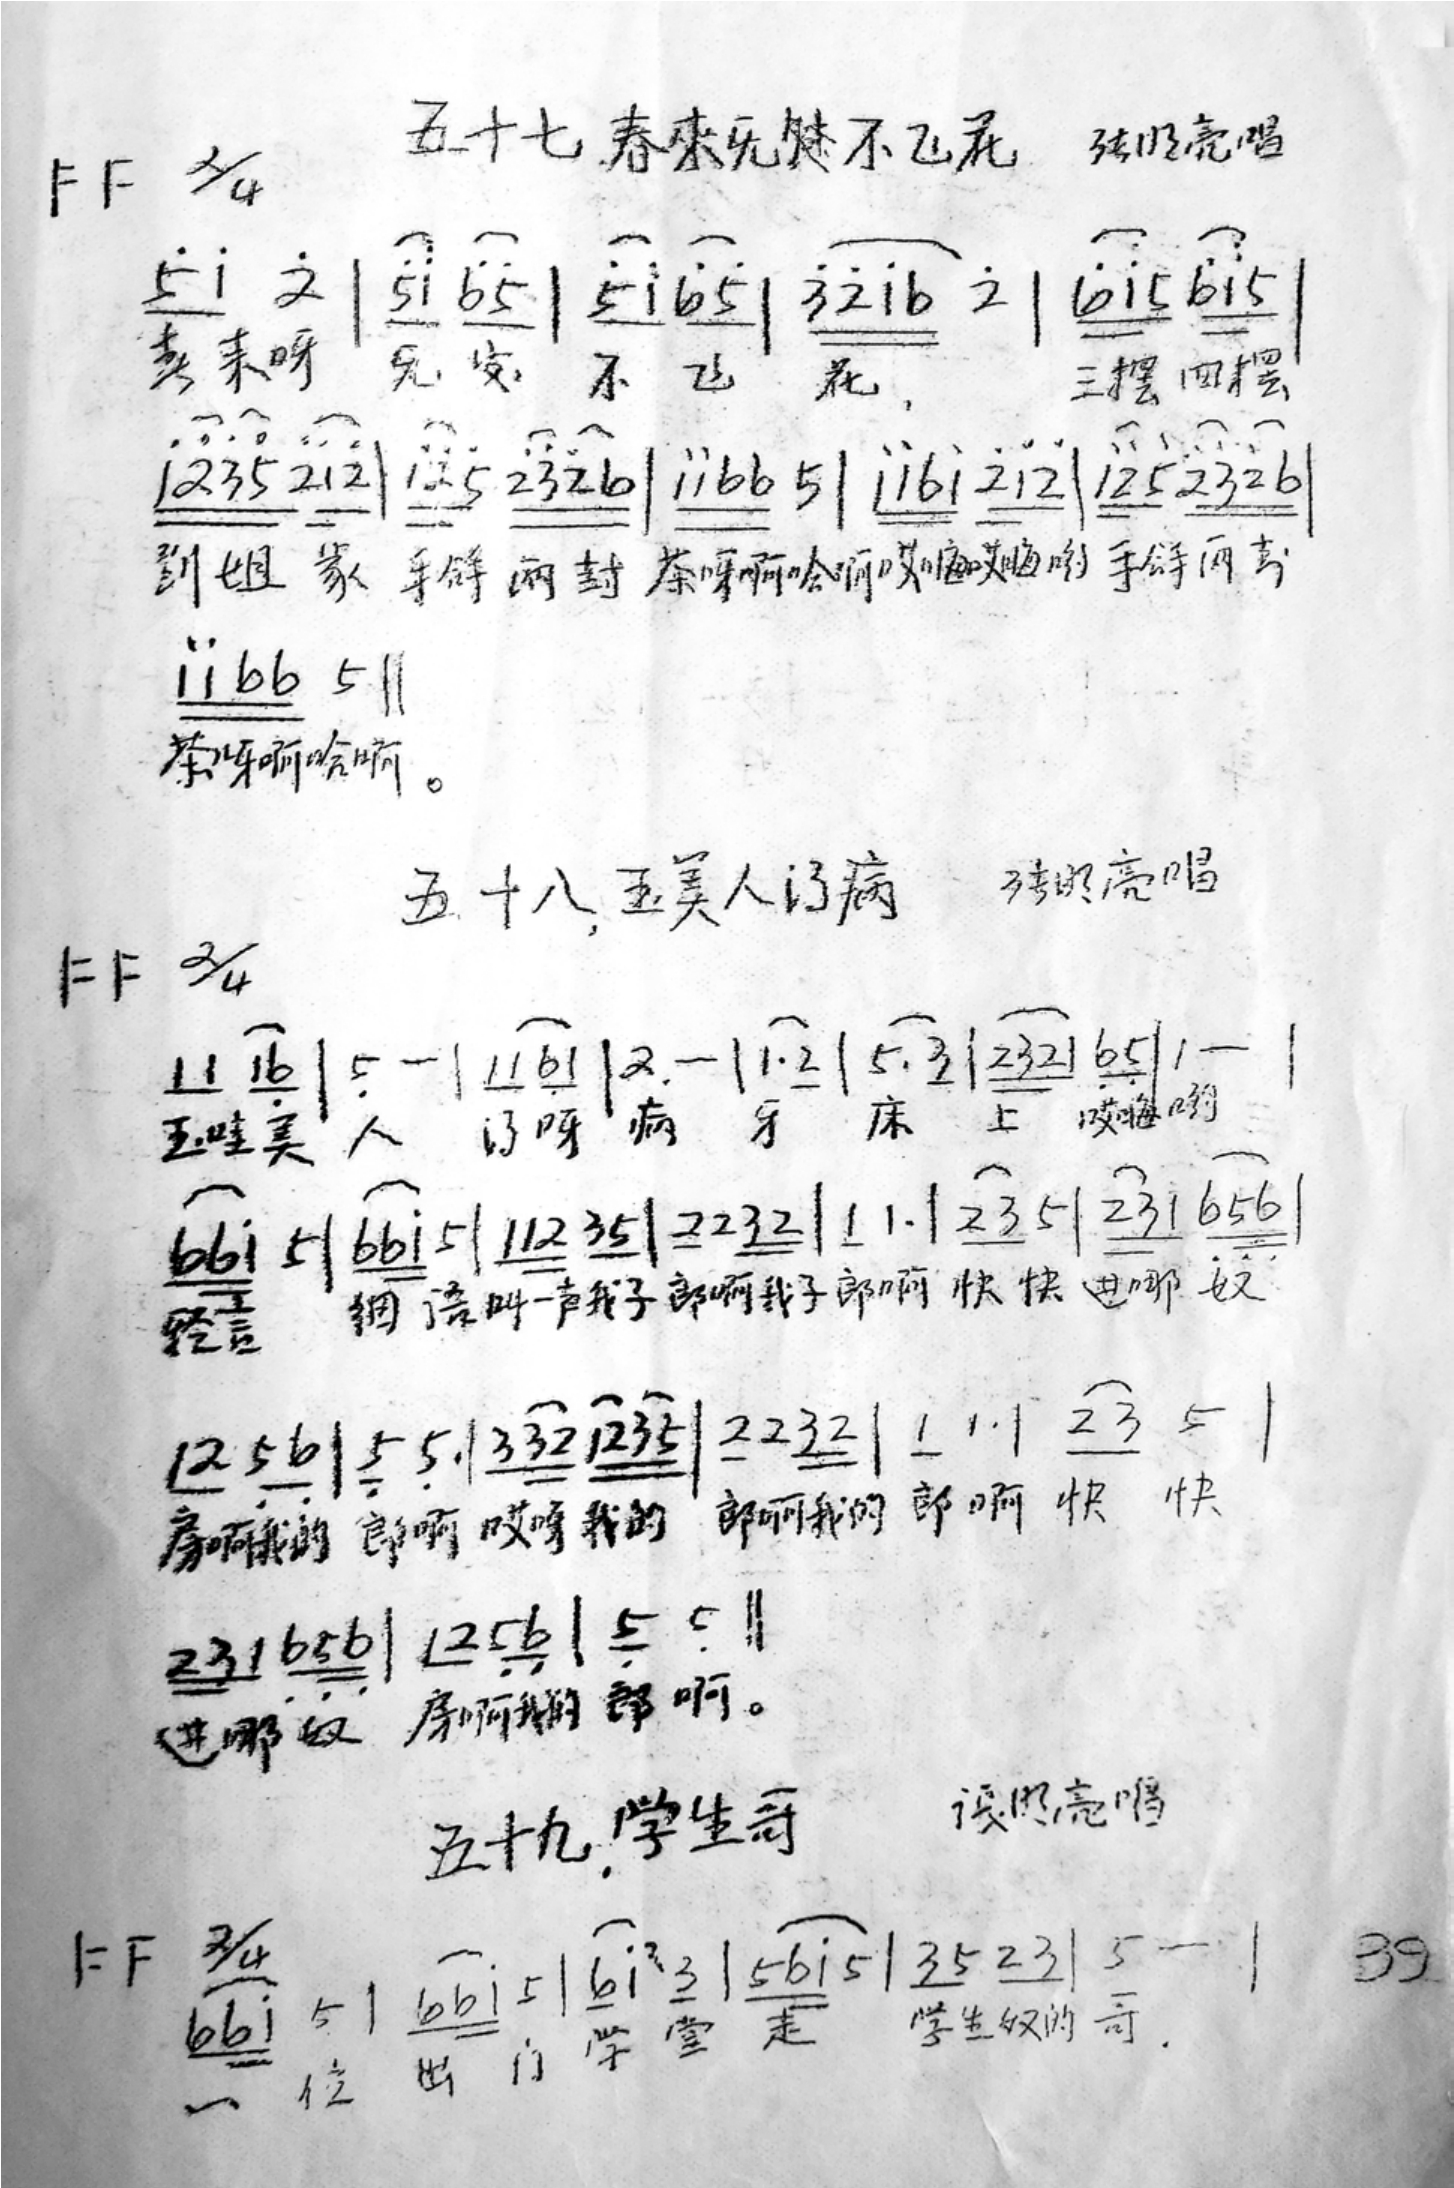 五十七 春来无处不飞花 张明亮唱
1=F 2/4
5̇ i̇ 2̇ | 5̇i̇ 6̇5̇ | 5̇i̇ 6̇5̇ | 3̇2̇i̇6 2̇ | 6i̇5 6i̇5 |
春来呀 无处 不飞 花, 三摆四摆
i̇2̇3̇5̇ 2̇i̇2̇ | i̇2̇5 2̇3̇2̇6 | i̇i̇66 5 | i̇i̇6i̇ 2̇i̇2̇ | i̇2̇5 2̇3̇2̇6 |
到姐家 手拿两封 茶呀啊哈啊哎嗨哎嗨哟 手拿两封
i̇i̇66 5 ‖
茶呀啊哈啊。
五十八,玉美人得病 张明亮唱
1=F 2/4
11 16̣ | 5̣ — | 116̣1 | 2. — | 1·2 | 5·3 | 2321 6̣5̣ | 1 — |
玉哇美 人 得呀 病 牙 床 上 哎嗨哟
66i̇ 5 | 66i̇ 5 | 112 35 | 2232 | 1 1· | 23 5 | 231 6̣5̣6̣ |
轻言 细语叫一声我子郎啊我子郎啊 快快进哪奴
12 5̣6̣ | 5̣ 5̣· | 332 1235 | 2232 | 1 1· | 23 5 |
房啊我的 郎啊 哎呀我的 郎啊我的 郎啊 快 快
231 6̣5̣6̣ | 12 5̣6̣ | 5̣ 5̣ ‖
进哪奴 房啊我的 郎啊。
五十九.学生哥 张明亮唱
1=F 2/4
66i̇ 5 | 66i̇ 5 | 6i̇ 3 | 56i̇5 | 35 23 | 5 — |
一 位 出 门 学 堂 走 学生奴的 哥.
39